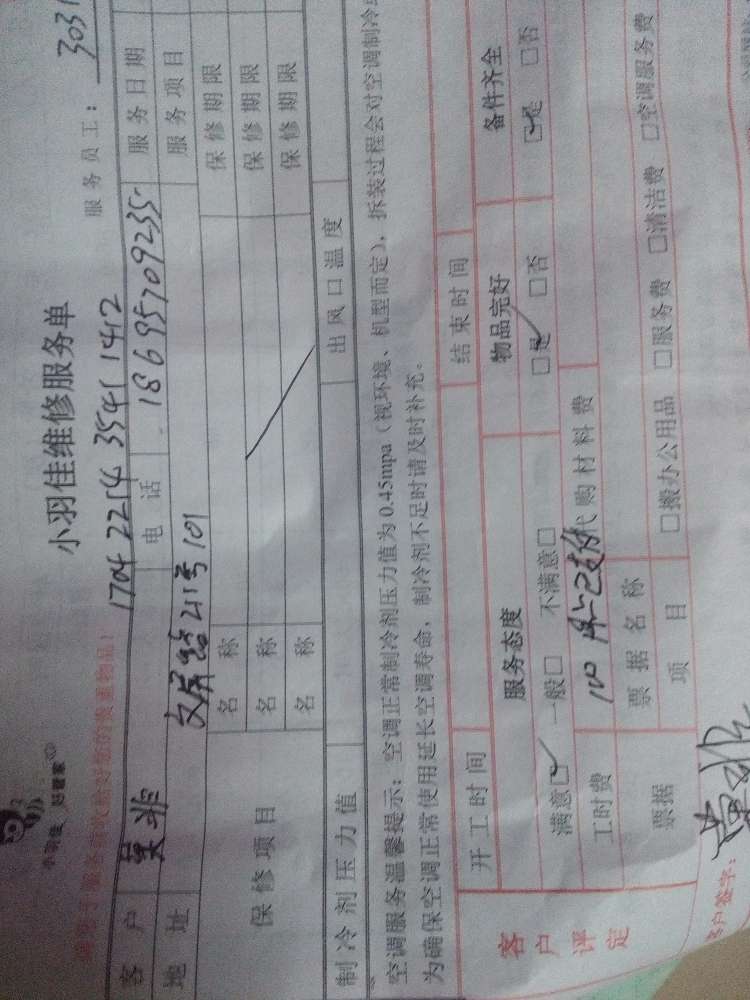 小羽佳 好管家
小羽佳维修服务单
服务员工：3031
1704 2214 3541 1412
客户 吴非 电话 18695709235 服务日期
地址 文屏路21号101 服务项目
保修项目 名称 保修期限
名称 保修期限
名称 保修期限
制冷剂压力值 出风口温度
空调服务温馨提示：空调正常制冷剂压力值为0.45mpa（视环境、机型而定），拆装过程会对空调制冷
为确保空调正常使用延长空调寿命，制冷剂不足时请及时补充。
客户评定
开工时间 结束时间
服务态度 物品完好 备件齐全
满意☑ 一般□ 不满意□ ☑是 □否 ☑是 □否
工时费 100 已支付 代购材料费
票据 票据名称
项目 □搬办公用品 □服务费 □清洁费 □空调服务费
客户签字：